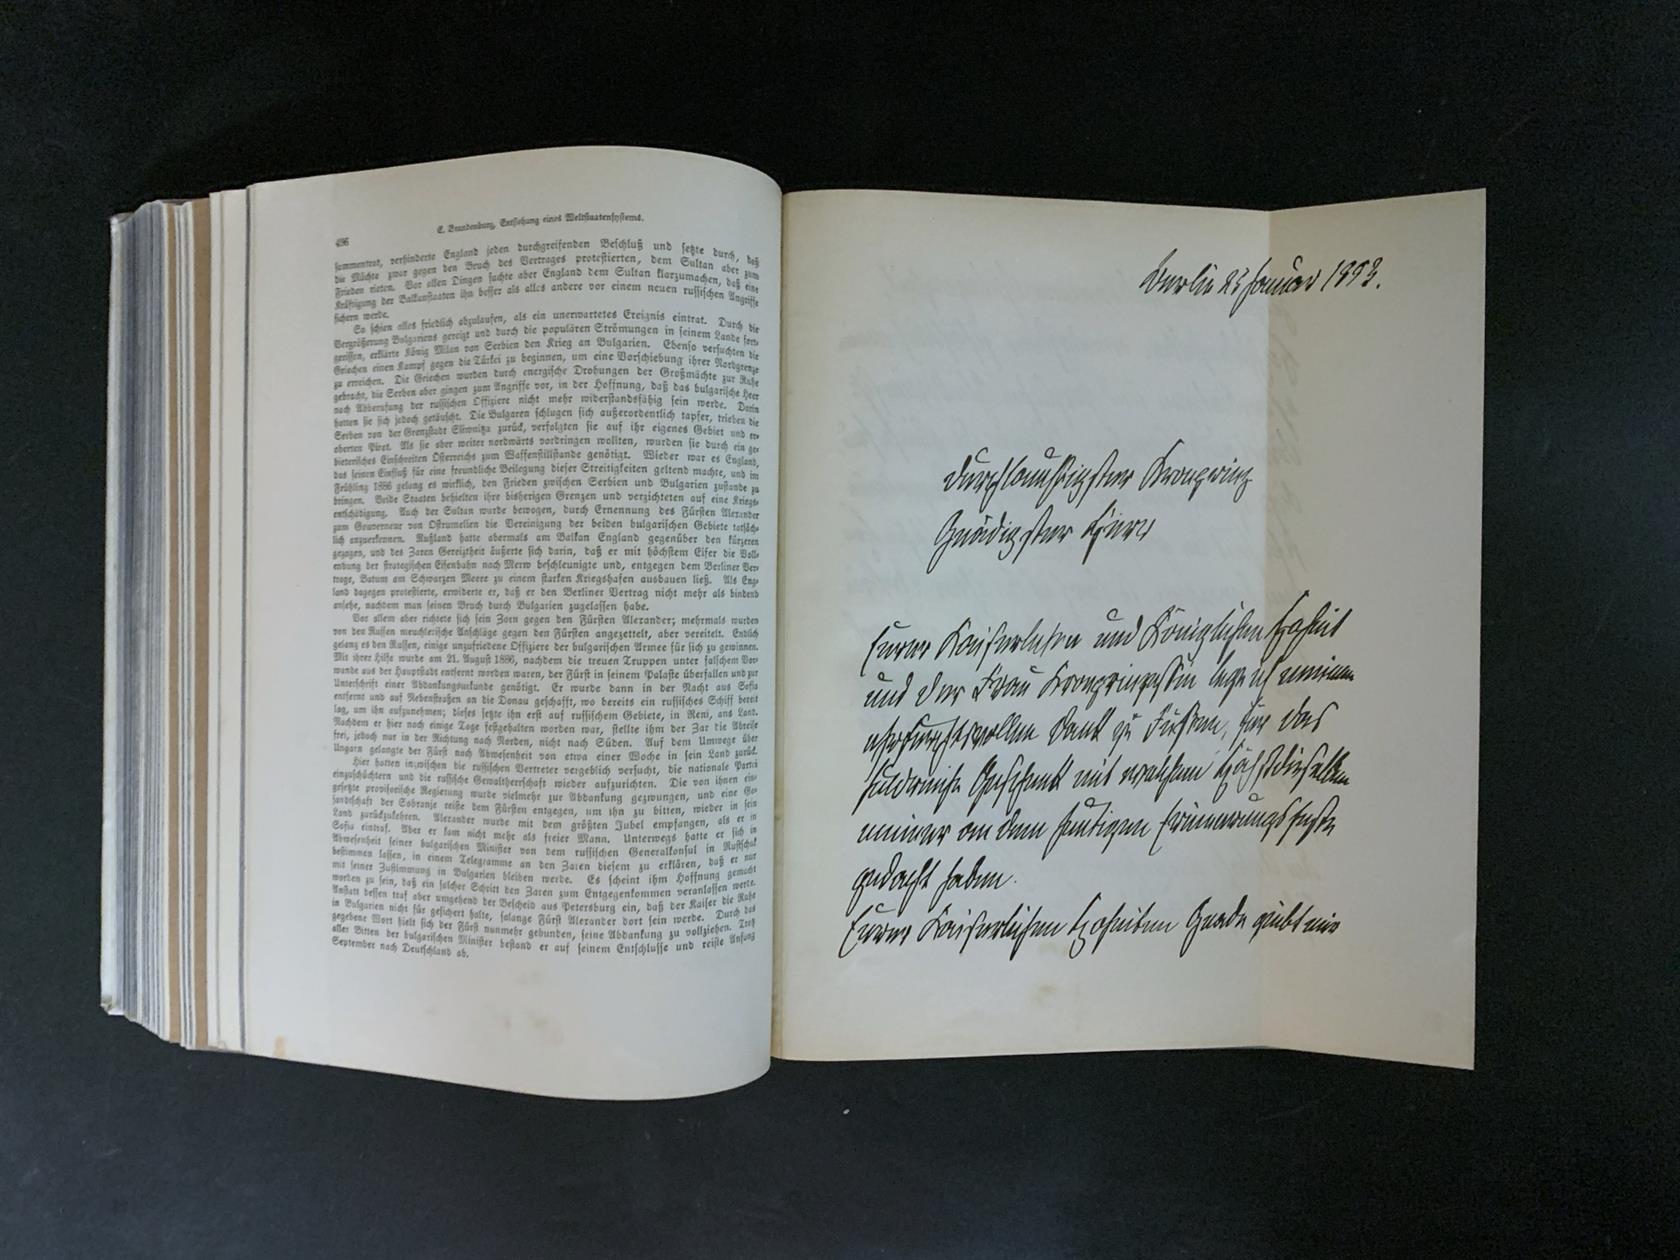 486
E. Brandenburg, Entstehung eines Weltstaatensystems.
sammentrat, verhinderte England jeden durchgreifenden Beschluß und setzte durch, daß
die Mächte zwar gegen den Bruch des Vertrages protestierten, dem Sultan aber zum
Frieden rieten. Vor allen Dingen suchte aber England dem Sultan klarzumachen, daß eine
Kräftigung der Balkanstaaten ihn besser als alles andere vor einem neuen russischen Angriffe
sichern werde.
So schien alles friedlich abzulaufen, als ein unerwartetes Ereignis eintrat. Durch die
Vergrößerung Bulgariens gereizt und durch die populären Strömungen in seinem Lande fort-
gerissen, erklärte König Milan von Serbien den Krieg an Bulgarien. Ebenso versuchten die
Griechen einen Kampf gegen die Türkei zu beginnen, um eine Vorschiebung ihrer Nordgrenze
zu erreichen. Die Griechen wurden durch energische Drohungen der Großmächte zur Ruhe
gebracht, die Serben aber gingen zum Angriffe vor, in der Hoffnung, daß das bulgarische Heer
nach Abberufung der russischen Offiziere nicht mehr widerstandsfähig sein werde. Darin
hatten sie sich jedoch getäuscht. Die Bulgaren schlugen sich außerordentlich tapfer, trieben die
Serben von der Grenzstadt Sliwnitza zurück, verfolgten sie auf ihr eigenes Gebiet und er-
oberten Pirot. Als sie aber weiter nordwärts vordringen wollten, wurden sie durch ein ge-
bieterisches Einschreiten Österreichs zum Waffenstillstande genötigt. Wieder war es England,
das seinen Einfluß für eine freundliche Beilegung dieser Streitigkeiten geltend machte, und im
Frühling 1886 gelang es wirklich, den Frieden zwischen Serbien und Bulgarien zustande zu
bringen. Beide Staaten behielten ihre bisherigen Grenzen und verzichteten auf eine Kriegs-
entschädigung. Auch der Sultan wurde bewogen, durch Ernennung des Fürsten Alexander
zum Gouverneur von Ostrumelien die Vereinigung der beiden bulgarischen Gebiete tatsäch-
lich anzuerkennen. Rußland hatte abermals am Balkan England gegenüber den kürzeren
gezogen, und des Zaren Gereiztheit äußerte sich darin, daß er mit höchstem Eifer die Voll-
endung der strategischen Eisenbahn nach Merw beschleunigte und, entgegen dem Berliner Ver-
trage, Batum am Schwarzen Meere zu einem starken Kriegshafen ausbauen ließ. Als Eng-
land dagegen protestierte, erwiderte er, daß er den Berliner Vertrag nicht mehr als bindend
ansehe, nachdem man seinen Bruch durch Bulgarien zugelassen habe.
Vor allem aber richtete sich sein Zorn gegen den Fürsten Alexander; mehrmals wurden
von den Russen meuchlerische Anschläge gegen den Fürsten angezettelt, aber vereitelt. Endlich
gelang es den Russen, einige unzufriedene Offiziere der bulgarischen Armee für sich zu gewinnen.
Mit ihrer Hilfe wurde am 21. August 1886, nachdem die treuen Truppen unter falschem Vor-
wande aus der Hauptstadt entfernt worden waren, der Fürst in seinem Palaste überfallen und zur
Unterschrift einer Abdankungsurkunde genötigt. Er wurde dann in der Nacht aus Sofia
entfernt und auf Nebenstraßen an die Donau geschafft, wo bereits ein russisches Schiff bereit
lag, um ihn aufzunehmen; dieses setzte ihn erst auf russischem Gebiete, in Reni, ans Land.
Nachdem er hier noch einige Tage festgehalten worden war, stellte ihm der Zar die Abreise
frei, jedoch nur in der Richtung nach Norden, nicht nach Süden. Auf dem Umwege über
Ungarn gelangte der Fürst nach Abwesenheit von etwa einer Woche in sein Land zurück.
Hier hatten inzwischen die russischen Vertreter vergeblich versucht, die nationale Partei
einzuschüchtern und die russische Gewaltherrschaft wieder aufzurichten. Die von ihnen ein-
gesetzte provisorische Regierung wurde vielmehr zur Abdankung gezwungen, und eine Ge-
sandtschaft der Sobranje reiste dem Fürsten entgegen, um ihn zu bitten, wieder in sein
Land zurückzukehren. Alexander wurde mit dem größten Jubel empfangen, als er in
Sofia eintraf. Aber er kam nicht mehr als freier Mann. Unterwegs hatte er sich in
Abwesenheit seiner bulgarischen Minister von dem russischen Generalkonsul in Rustschuk
bestimmen lassen, in einem Telegramme an den Zaren diesem zu erklären, daß er nur
mit seiner Zustimmung in Bulgarien bleiben werde. Es scheint ihm Hoffnung gemacht
worden zu sein, daß ein solcher Schritt den Zaren zum Entgegenkommen veranlassen werde.
Anstatt dessen traf aber umgehend der Bescheid aus Petersburg ein, daß der Kaiser die Ruhe
in Bulgarien nicht für gesichert halte, solange Fürst Alexander dort sein werde. Durch das
gegebene Wort hielt sich der Fürst nunmehr gebunden, seine Abdankung zu vollziehen. Trotz
aller Bitten der bulgarischen Minister bestand er auf seinem Entschlusse und reiste Anfang
September nach Deutschland ab.
Berlin 25 Januar 1883.
Durchlauchtigster Kronprinz
Gnädigster Herr
Eurer Kaiserlichen und Königlichen Hoheit
und der Frau Kronprinzessin lege ich meinen
ehrfurchtsvollen Dank zu Füßen, für das
huldreiche Geschenk mit welchem Höchstdieselben
meiner an dem heutigen Erinnerungsfeste
gedacht haben.
Eurer Kaiserlichen Hoheiten Gnade giebt mir